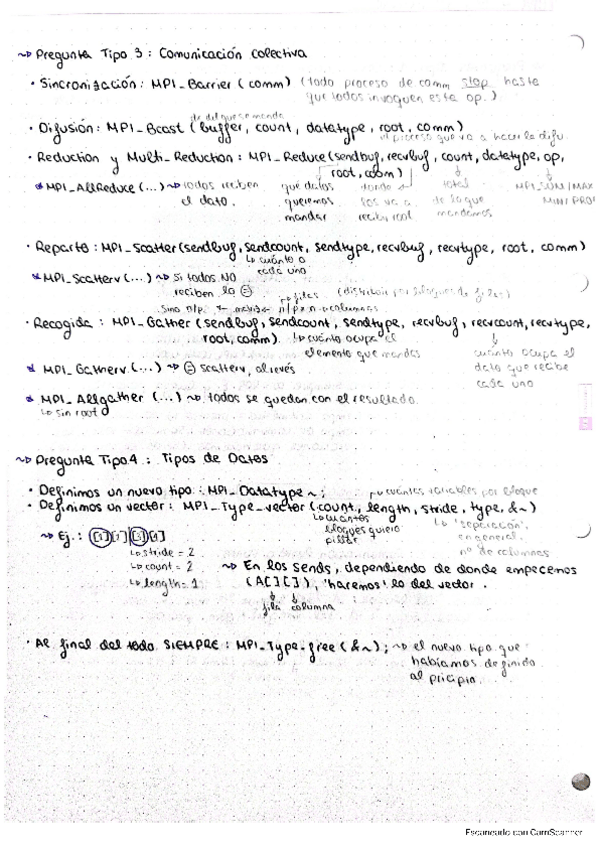 ~> Pregunta Tipo 3: Comunicación colectiva
· Sincronización: MPI_Barrier (comm) (todo proceso de comm stop hasta
que todos invoquen esta op.)
· Difusión: MPI_Bcast (buffer, count, datatype, root, comm)
el proceso que va a hacer la difu.
· Reduction y Multi_Reduction: MPI_Reduce(sendbuf, recvbuf, count, datatype, op,
root, comm)
* MPI_AllReduce (...) ~> todos reciben
el dato.
qué datos
queremos
mandar
donde
los va a
recibir root
total
de lo que
mandamos
MPI_SUM/MAX
MIN/PROD
· Reparto: MPI_Scatter(sendbuf, sendcount, sendtype, recvbuf, recvtype, root, comm)
↳ cuánto a
cada uno
* MPI_Scatterv (...) ~> Si todos NO
reciben lo =
· Recogida: MPI_Gather (sendbuf, sendcount, sendtype, recvbuf, recvcount, recvtype,
root, comm)
↳ cuánto ocupa el
elemento que mandas
cuánto ocupa el
dato que recibe
cada uno
* MPI_Gatherv (...) ~> = scatterv, al revés
* MPI_Allgather (...) ~> todos se quedan con el resultado.
↳ sin root
~> Pregunta Tipo 4: Tipos de Datos
· Definimos un nuevo tipo: MPI_Datatype ~;
cuántas variables por bloque
· Definimos un vector: MPI_Type_vector (count, length, stride, type, &~)
↳ cuantos
bloques quiero
pillar
↳ 'separación',
en general,
nº de columnas
~> Ej.: [ ] [ ] [ ] [ ]
↳ stride = 2
↳ count = 2
↳ length = 1
~> En los sends, dependiendo de donde empecemos
(A[][]), 'haremos' lo del vector.
fila columna
· Al final del todo SIEMPRE: MPI_Type_free (&~); ~> el nuevo tipo que
habíamos definido
al pricipio.
Escaneado con CamScanner